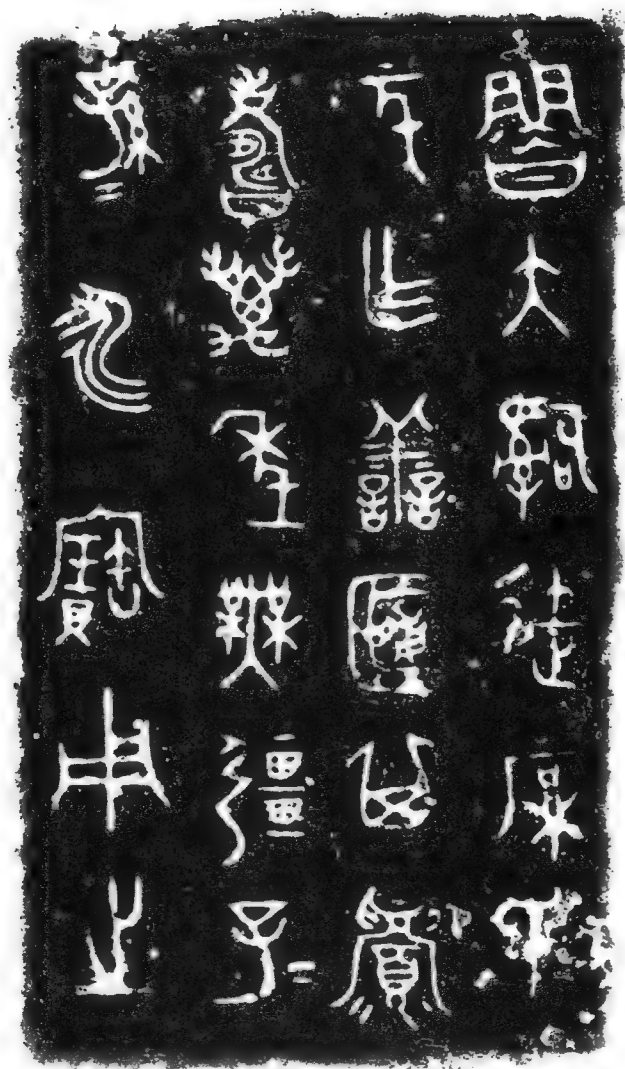 魯大𤔲徒厚氏
元乍譱簠其眉
壽萬年無疆子=
孫=永寶用之